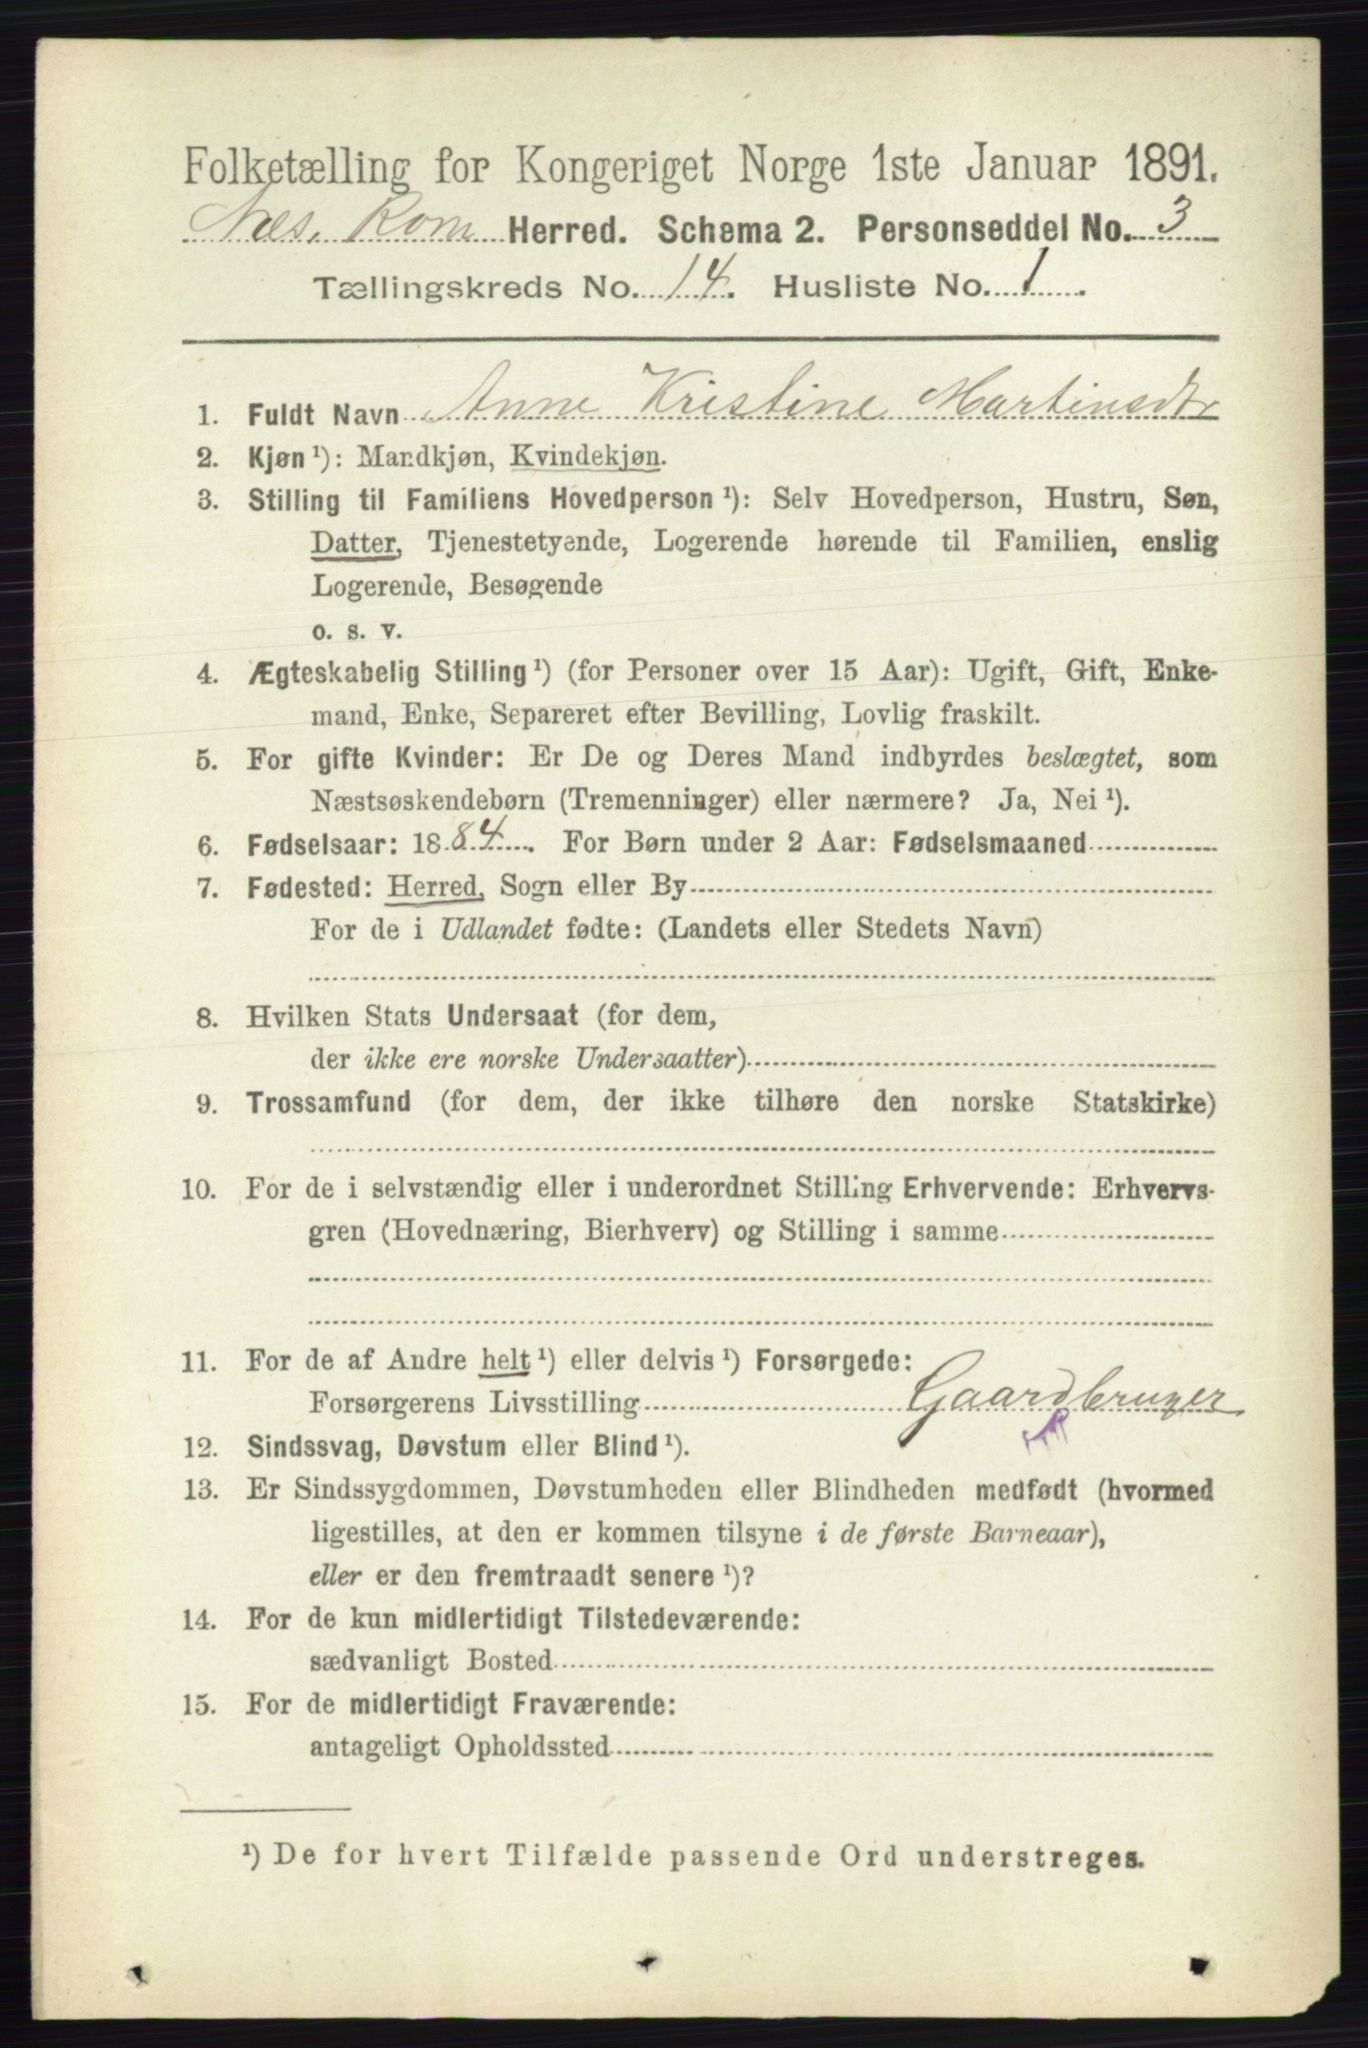 Folketælling for Kongeriget Norge 1ste Januar 1891.
Næs, Rom Herred. Schema 2. Personseddel No. 3
Tællingskreds No. 14. Husliste No. 1.
1. Fuldt Navn Anne Kristine Martinsdtr
2. Kjøn ¹): Mandkjøn, Kvindekjøn.
3. Stilling til Familiens Hovedperson ¹): Selv Hovedperson, Hustru, Søn,
Datter, Tjenestetyende, Logerende hørende til Familien, enslig
Logerende, Besøgende
o. s. v.
4. Ægteskabelig Stilling ¹) (for Personer over 15 Aar): Ugift, Gift, Enke-
mand, Enke, Separeret efter Bevilling, Lovlig fraskilt.
5. For gifte Kvinder: Er De og Deres Mand indbyrdes beslægtet, som
Næstsøskendebørn (Tremenninger) eller nærmere? Ja, Nei ¹).
6. Fødselsaar: 1884. For Børn under 2 Aar: Fødselsmaaned
7. Fødested: Herred, Sogn eller By
For de i Udlandet fødte: (Landets eller Stedets Navn)
8. Hvilken Stats Undersaat (for dem,
der ikke ere norske Undersaatter)
9. Trossamfund (for dem, der ikke tilhøre den norske Statskirke)
10. For de i selvstændig eller i underordnet Stilling Erhvervende: Erhvervs-
gren (Hovednæring, Bierhverv) og Stilling i samme
11. For de af Andre helt ¹) eller delvis ¹) Forsørgede:
Forsørgerens Livsstilling Gaardbruger
12. Sindssvag, Døvstum eller Blind ¹).
13. Er Sindssygdommen, Døvstumheden eller Blindheden medfødt (hvormed
ligestilles, at den er kommen tilsyne i de første Barneaar),
eller er den fremtraadt senere ¹)?
14. For de kun midlertidigt Tilstedeværende:
sædvanligt Bosted
15. For de midlertidigt Fraværende:
antageligt Opholdssted
¹) De for hvert Tilfælde passende Ord understreges.